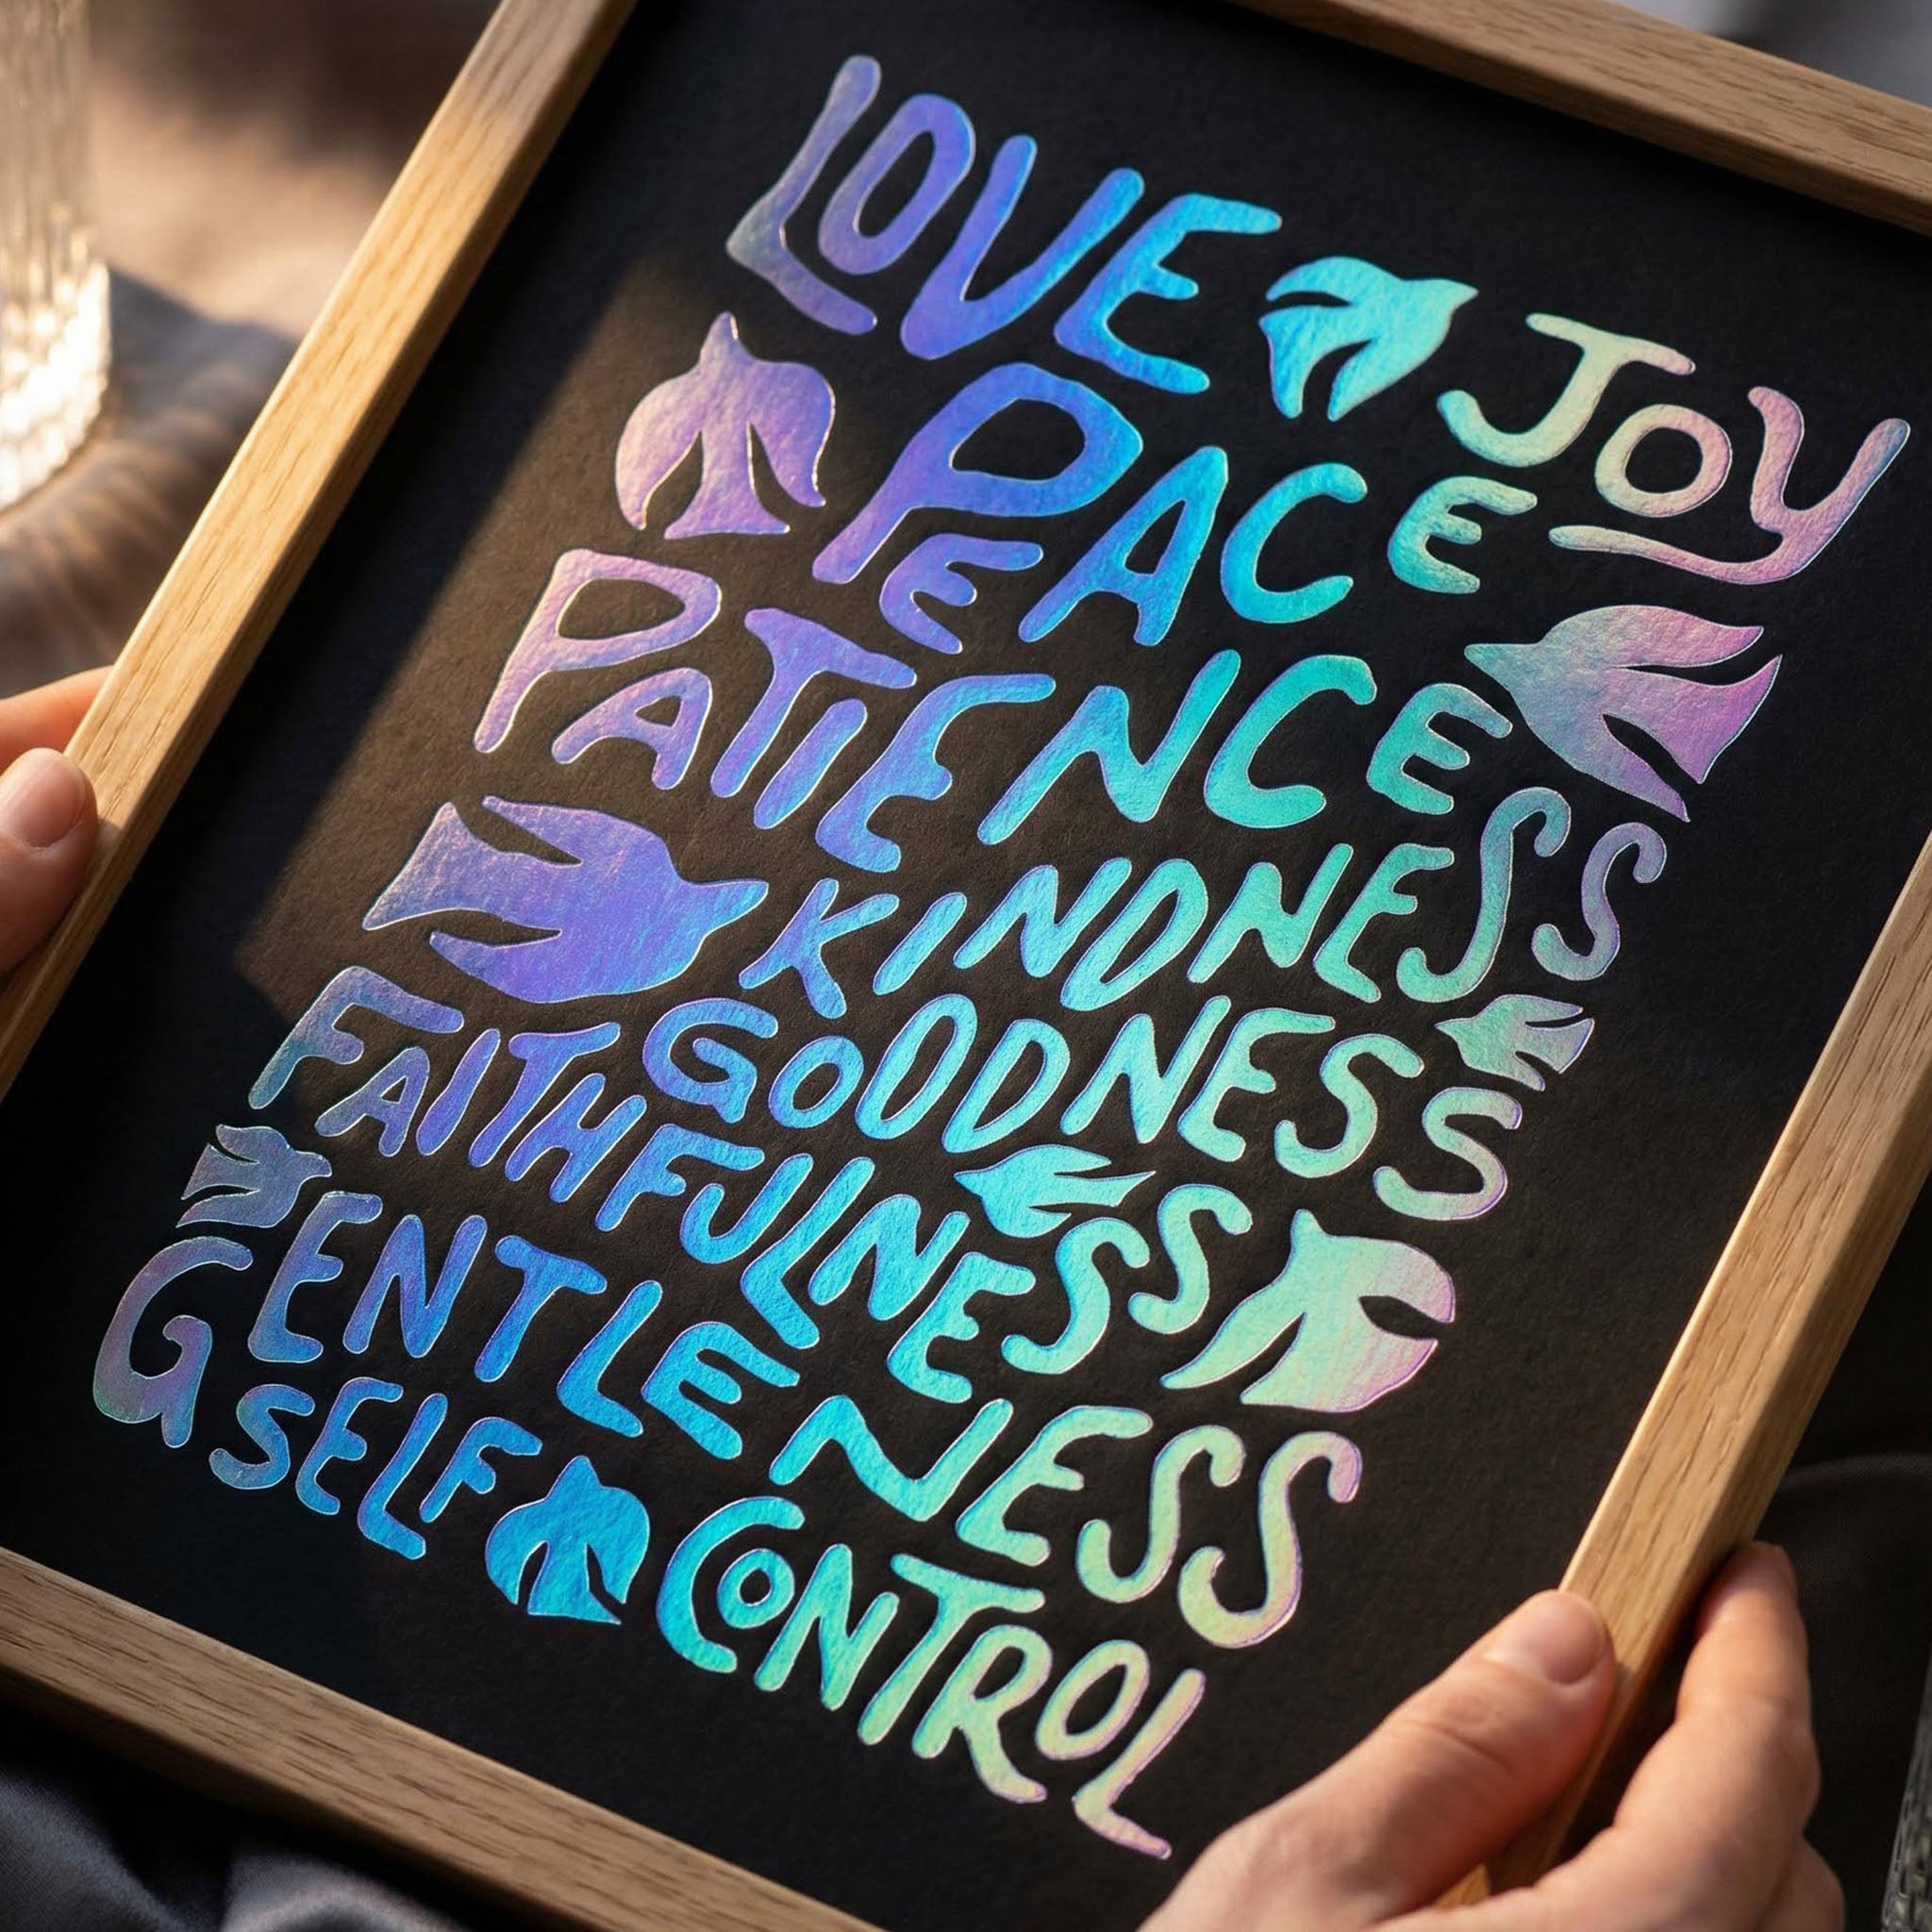 LOVE JOY
PEACE
PATIENCE
KINDNESS
GOODNESS
FAITHFULNESS
GENTLENESS
SELF CONTROL